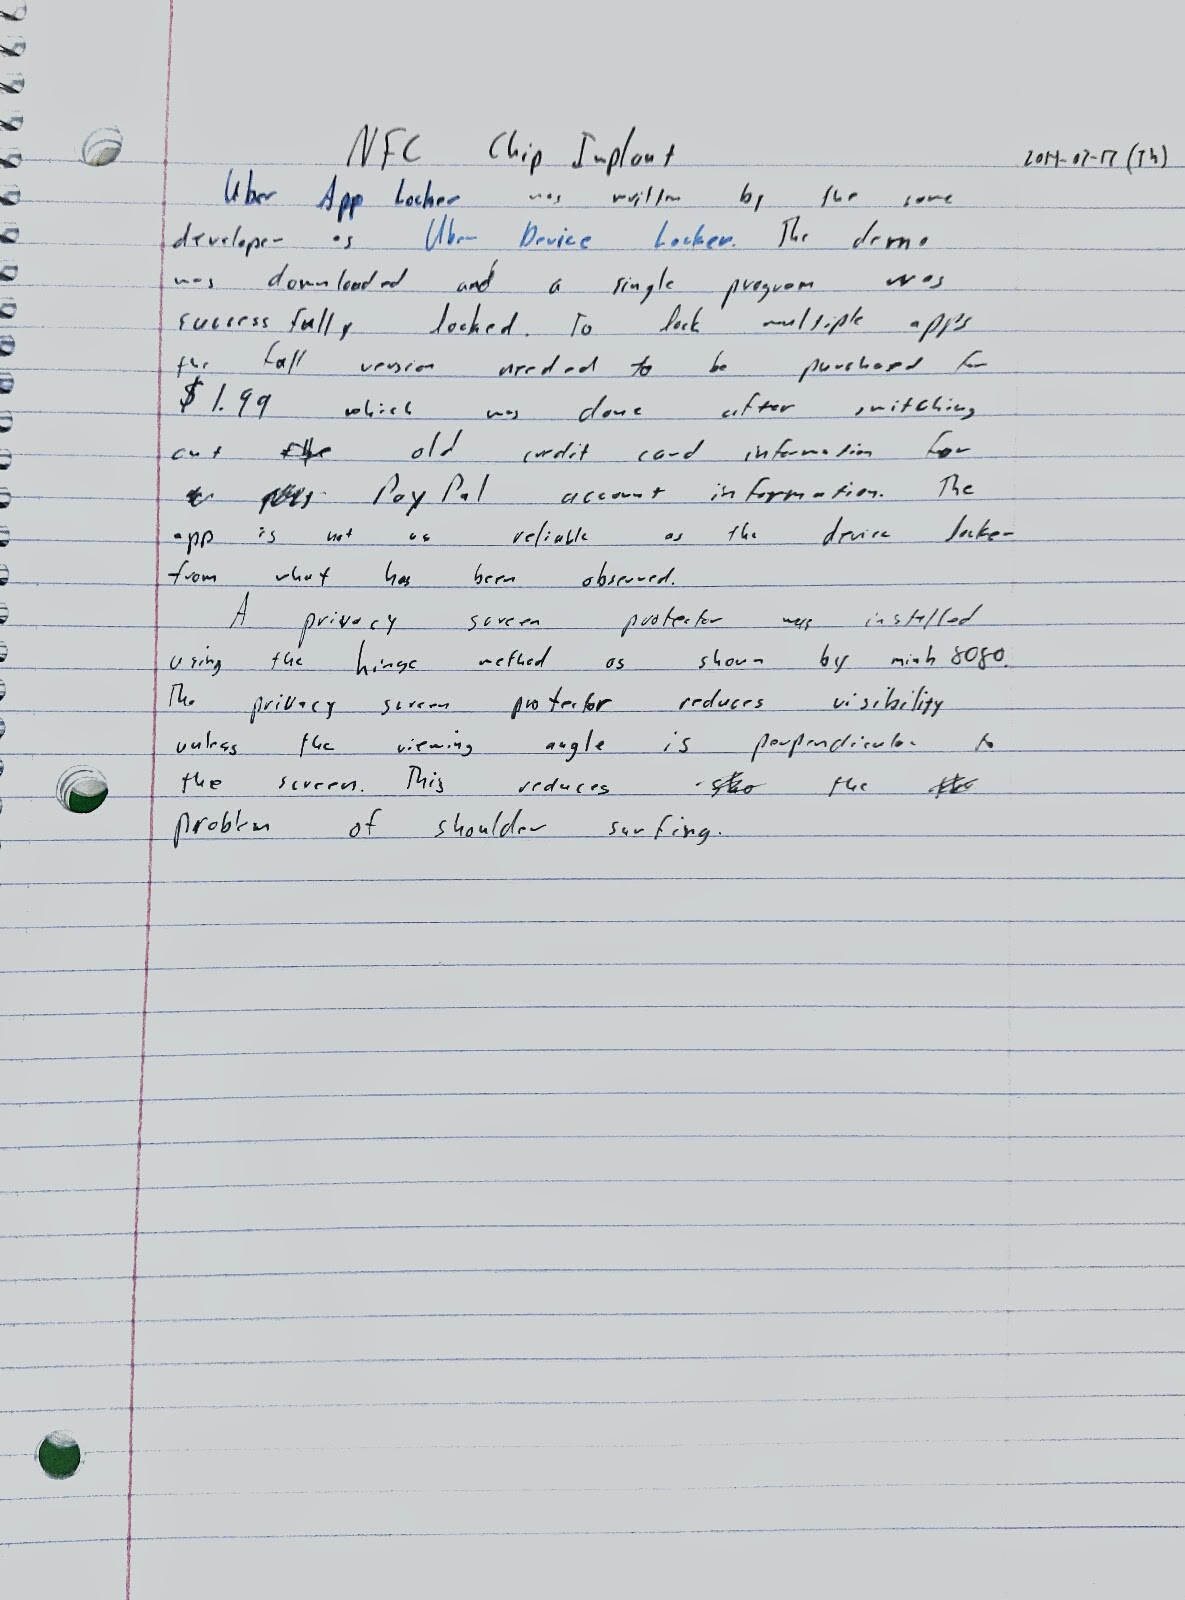 NFC Chip Implant
2014-07-17 (Th)
Uber App Locker was written by the same
developer as Uber Device Locker. The demo
was downloaded and a single program was
successfully locked. To lock multiple apps
the full version needed to be purchased for
$1.99 which was done after switching
out the old credit card information for
PayPal account information. The
app is not as reliable as the device locker
from what has been observed.
A privacy screen protector was installed
using the hinge method as shown by minh 8080.
The privacy screen protector reduces visibility
unless the viewing angle is perpendicular to
the screen. This reduces the
problem of shoulder surfing.